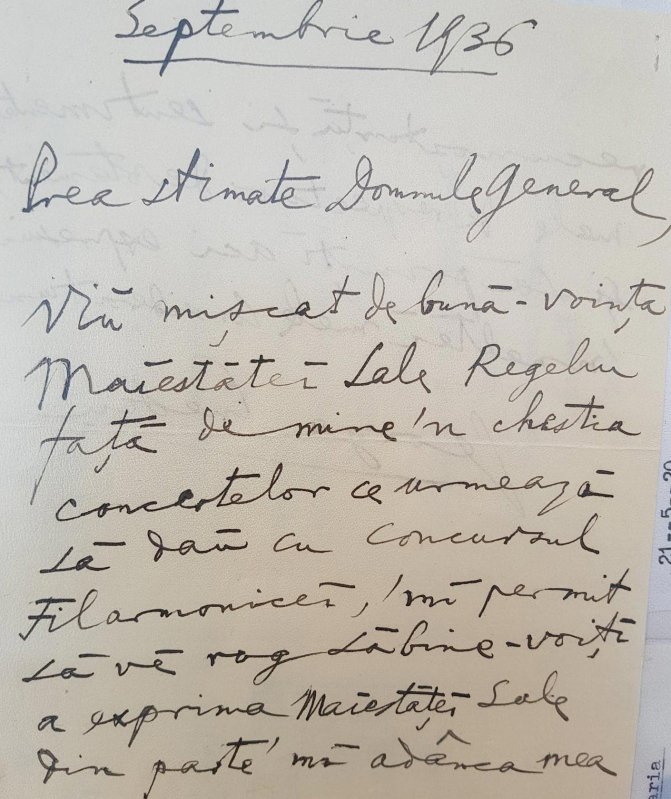 Septembrie 1936
Prea stimate Domnule General,
Viŭ mișcat de bună-voința
Maiestăței Sale Regelui
față de mine 'n chestia
concertelor ce urmează
să daŭ cu concursul
Filarmonicei, 'mi permit
să vĕ rog să bine-voiți
a exprima Maiestăței Sale
din parte 'mi adânca mea
21-5-20
aria